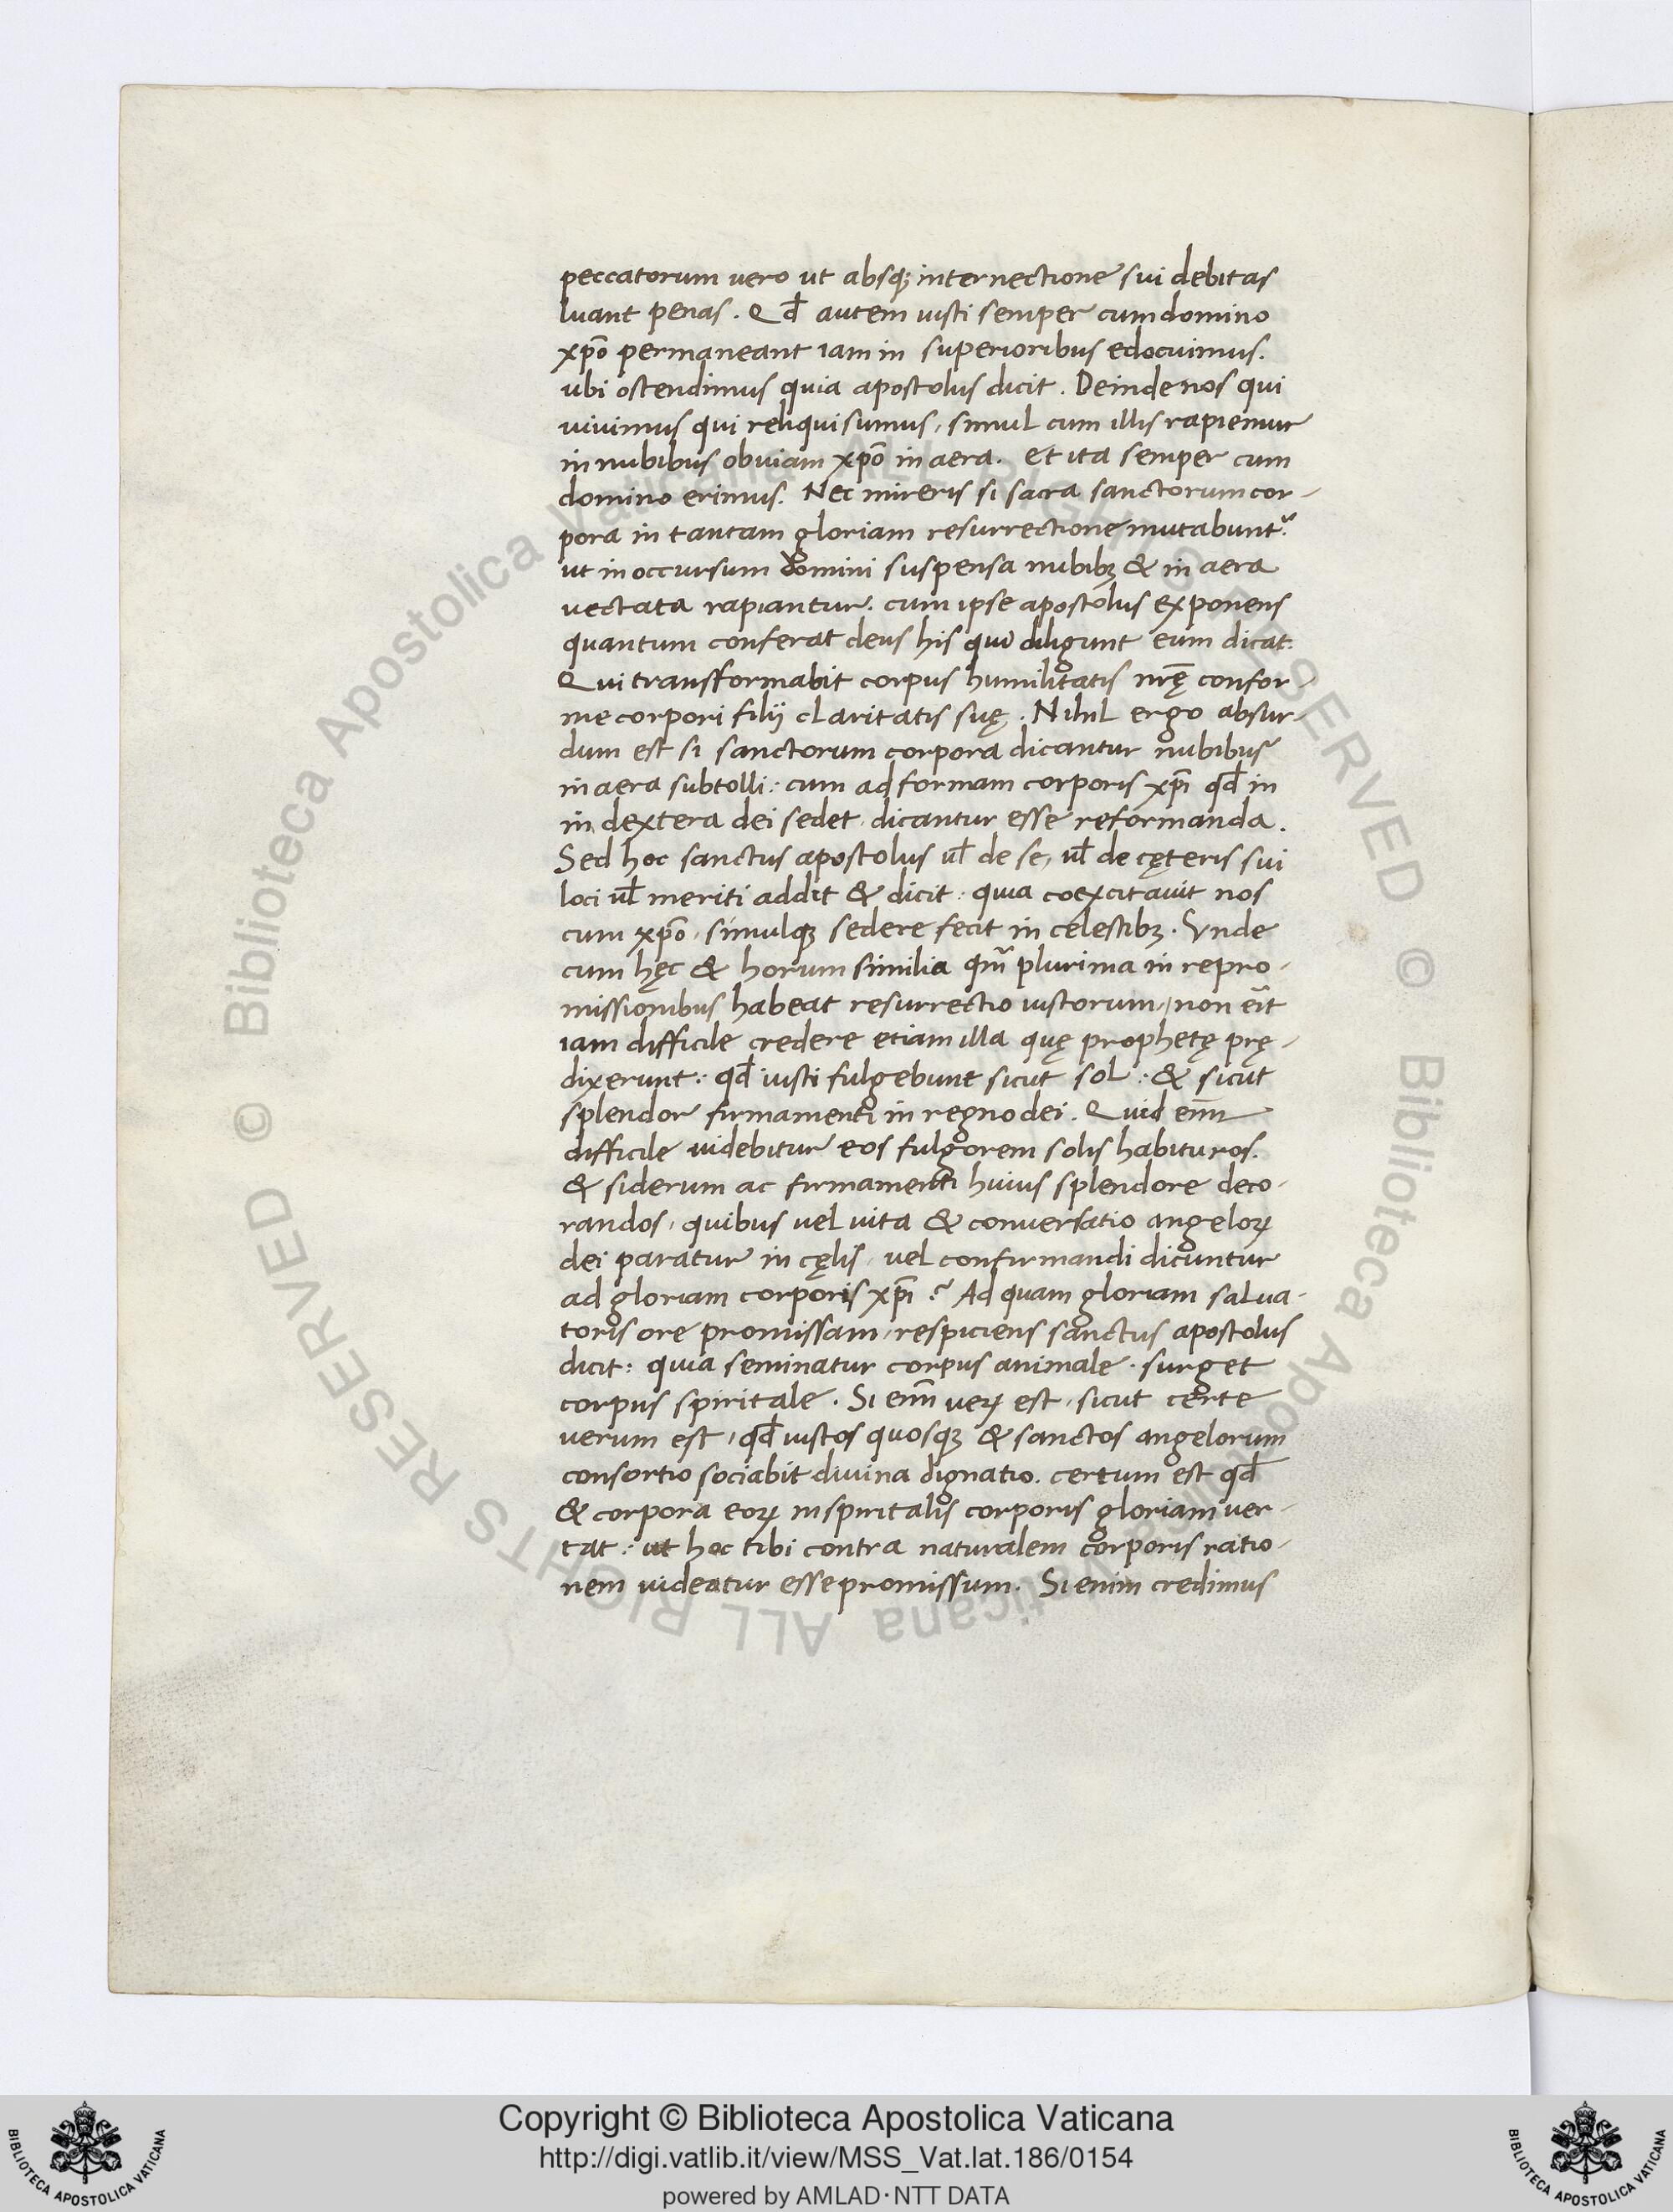 peccatorum vero ut absq; internectione sui debitas
luant penas. Qđ autem iusti semper cum domino
xp̄o permaneant iam in superioribus edocuimus.
ubi ostendimus quia apostolus dicit. Deinde nos qui
uiuimus qui reliqui sumus, simul cum illis rapiemur
in nubibus obuiam xp̄o in aera. et ita semper cum
domino erimus. Nec mireris si sacra sanctorum cor-
pora in tantam gloriam resurrectione mutabunt᷑
ut in occursum domini suspensa nubibꝫ & in aera
uectata rapiantur. cum ipse apostolus exponens
quantum conferat deus his qui diligunt eum dicat.
Qui transformabit corpus humilitatis nr̄ę confor-
me corpori filij claritatis suę. Nihil ergo absur-
dum est si sanctorum corpora dicantur nubibus
in aera subtolli: cum ad formam corporis xp̄i qđ in
in dextera dei sedet dicantur esse reformanda.
Sed hoc sanctus apostolus uł de se, uł de cęteris sui
loci uł meriti addit & dicit: quia coexcitauit nos
cum xp̄o, simulqꝫ sedere fecit in celestibꝫ. Vnde
cum hęc & horum similia qm̄ plurima in repro-
missionibus habeat resurrectio iustorum, non er̄it
iam difficile credere etiam illa quę prophetę prę-
dixerunt: qđ iusti fulgebunt sicut sol: & sicut
splendor firmamenti in regno dei. Quid enī̄
difficile uidebitur eos fulgorem solis habituros.
& siderum ac firmamenti huius splendore deco-
randos, quibus uel uita & conuersatio angeloꝝ
dei paratur in cęlis, uel confirmandi dicuntur
ad gloriam corporis xp̄i? Ad quam gloriam salua-
toris ore promissam, respiciens sanctus apostolus
dicit: quia seminatur corpus animale. surget
corpus spiritale. Si enī̄ ueꝝ est, sicut certe
uerum est, qđ iustos quosqꝫ & sanctos angelorum
consortio sociabit diuina dignatio. certum est qđ
& corpora eoꝝ in spiritalis corporis gloriam uer-
tat: ut hoc tibi contra naturalem corporis ratio-
nem uideatur esse promissum. Si enim credimus
Copyright © Biblioteca Apostolica Vaticana
http://digi.vatlib.it/view/MSS_Vat.lat.186/0154
powered by AMLAD·NTT DATA
BIBLIOTECA APOSTOLICA VATICANA
BIBLIOTECA APOSTOLICA VATICANA
© Biblioteca Apostolica Vaticana ALL RIGHTS RESERVED
© Biblioteca Apostolica Vaticana ALL RIGHTS RESERVED